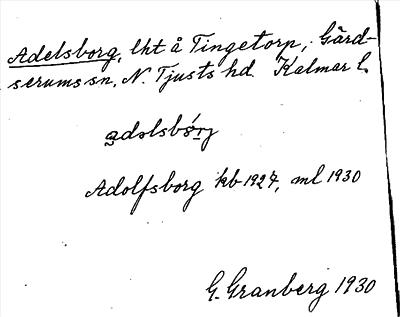 Adelsborg, lht å Tingetorp, Gård-
serums sn, N. Tjusts hd. Kalmar l.
adəlsbórj
Adolfsborg kb 1927, ml 1930
G. Granberg 1930